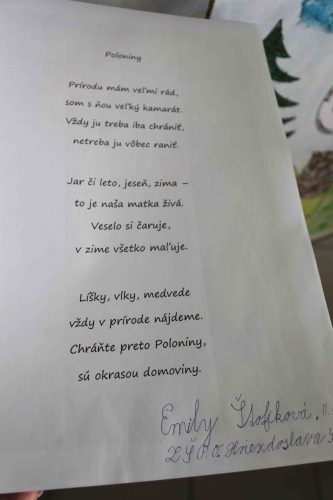 Poloniny
Prírodu mám veľmi rád,
som s ňou veľký kamarát.
Vždy ju treba iba chrániť,
netreba ju vôbec raniť.
Jar či leto, jeseň, zima –
to je naša matka živá.
Veselo si čaruje,
v zime všetko maľuje.
Líšky, vlky, medvede
vždy v prírode nájdeme.
Chráňte preto Poloniny,
sú okrasou domoviny.
Emily
ZŠ P. O. Hviezdoslava